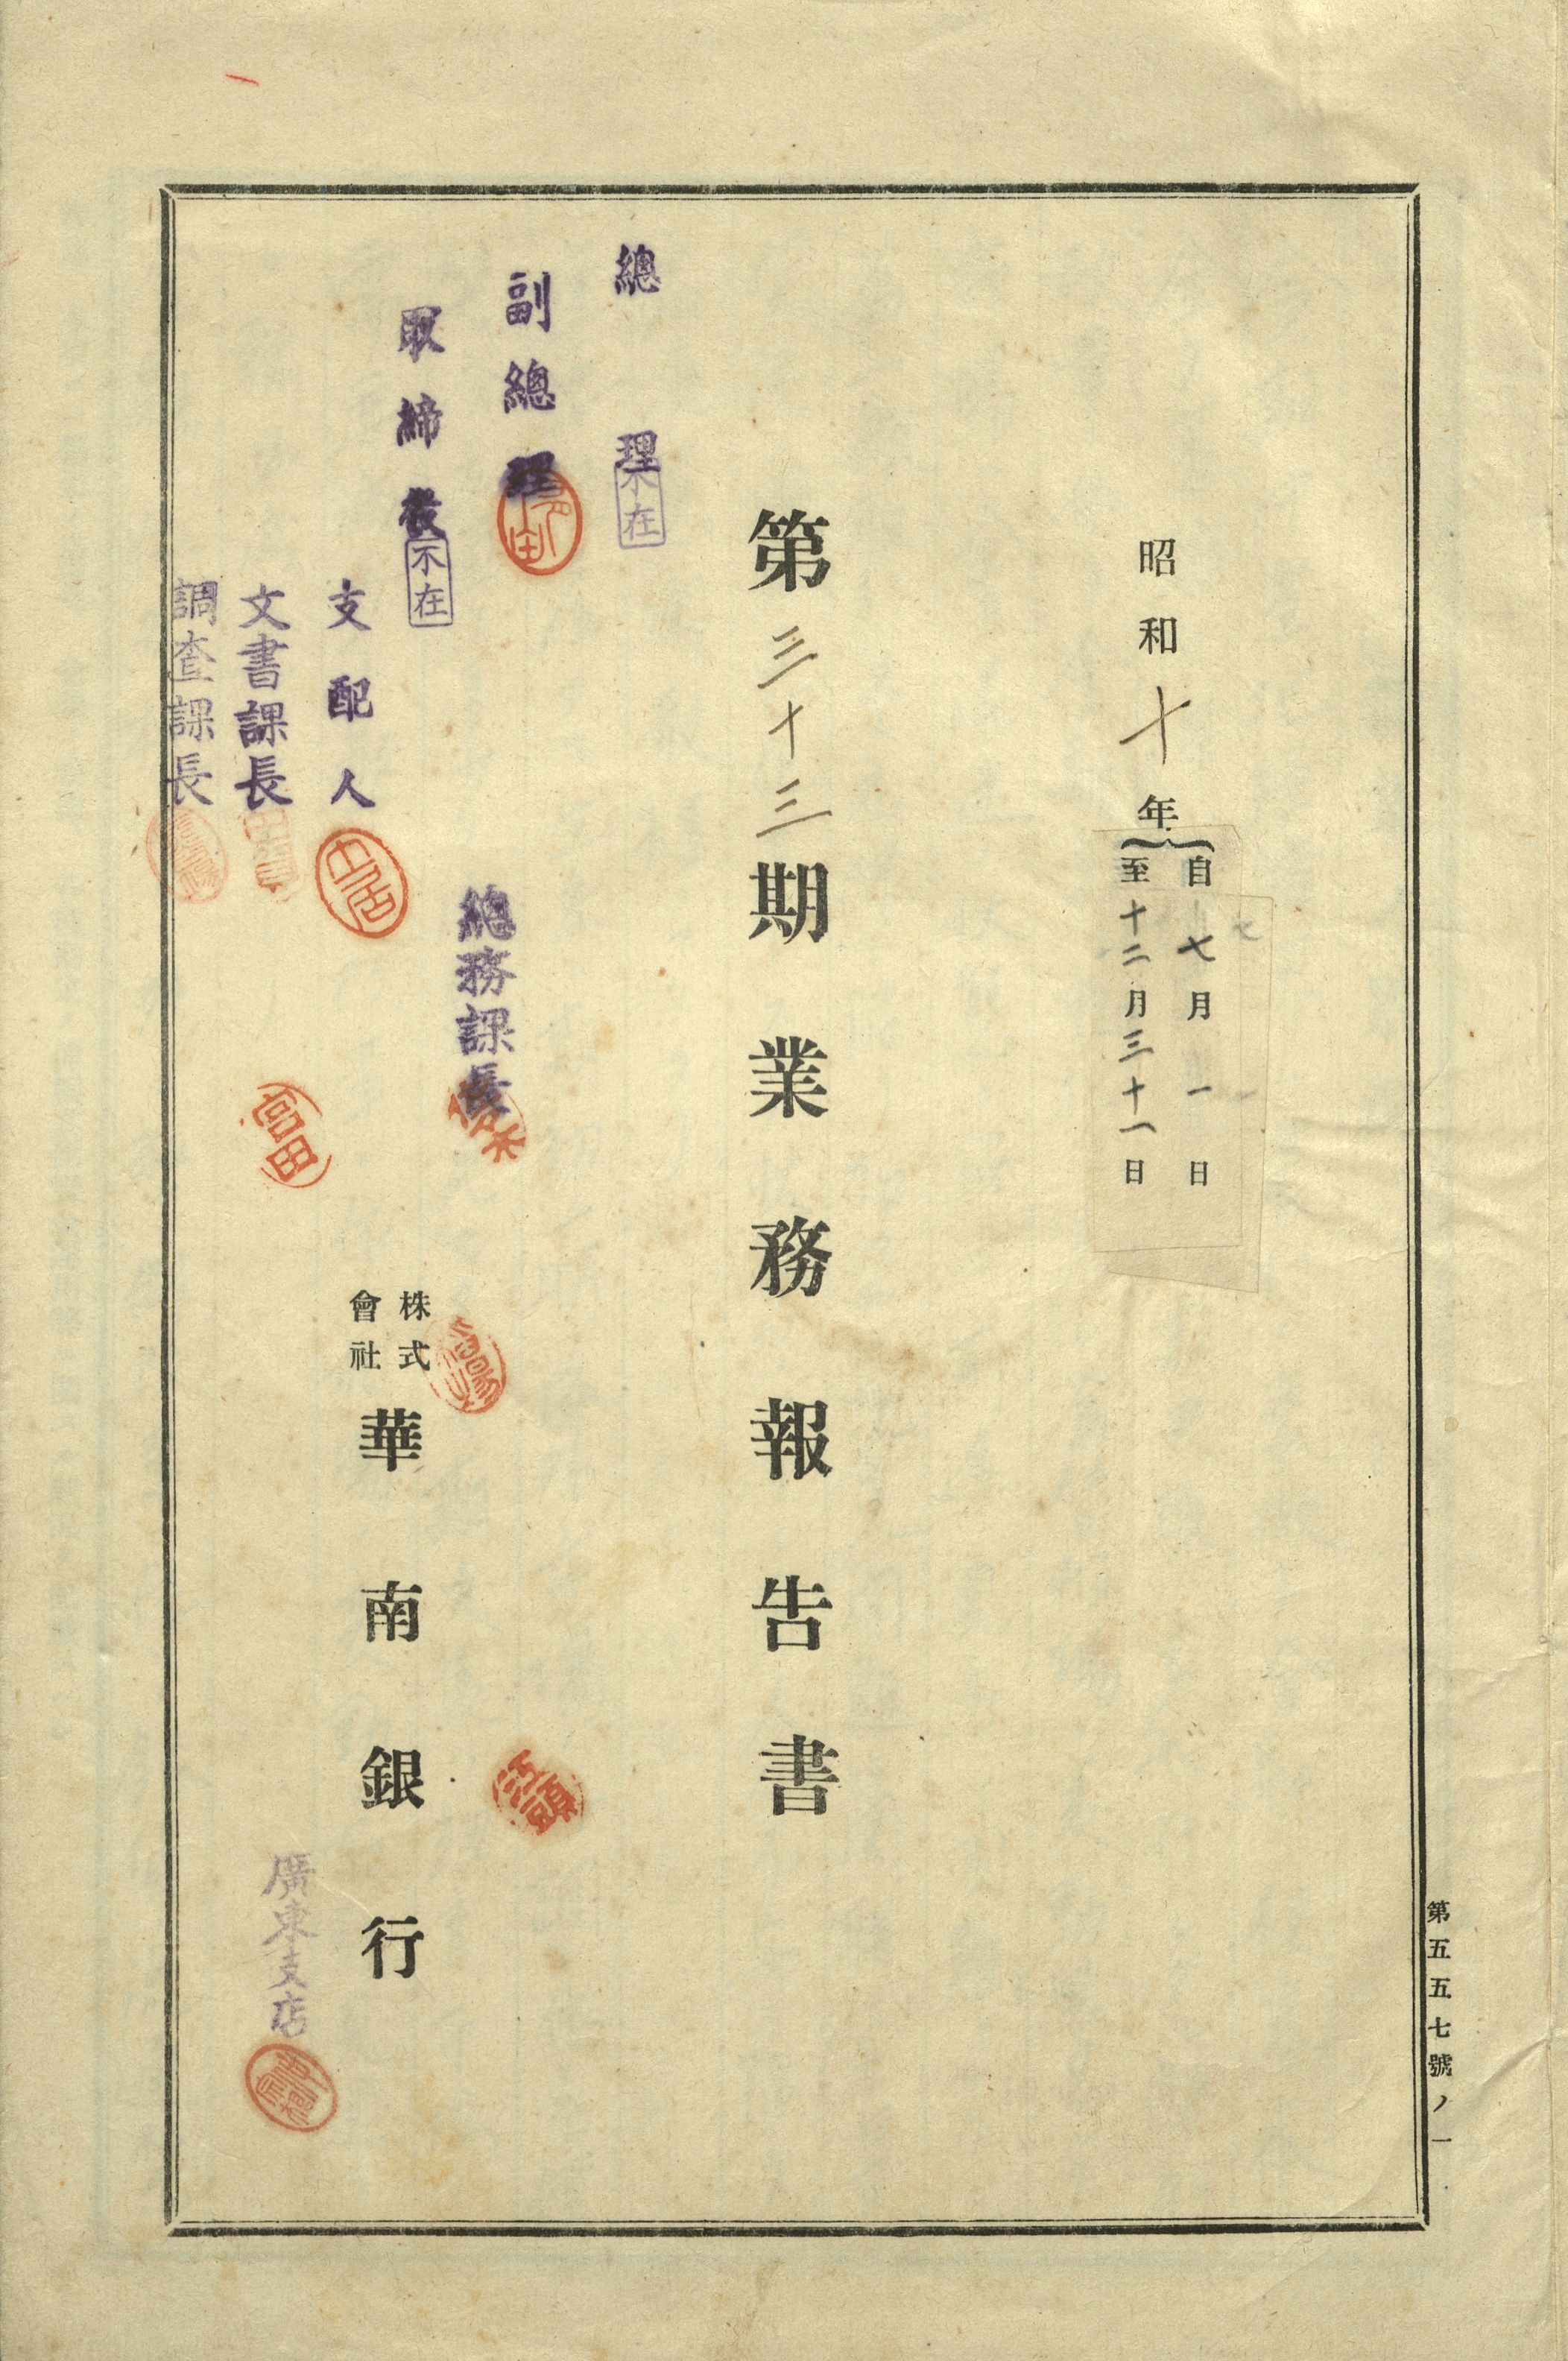 第五五七號ノ一
昭和十年
自七月一日
至十二月三十一日
第三十三期業務報告書
總理
不在
副總理
取締役
不在
總務課長
支配人
文書課長
調査課長
富田
株式
會社
華南銀行
廣東支店